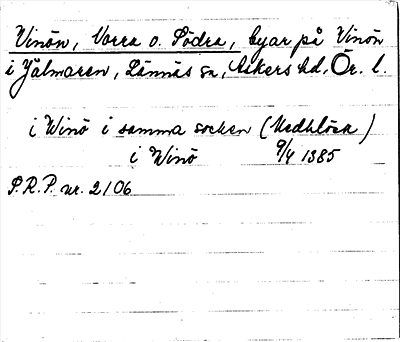 Vinön, Norra o. Södra, byar på Vinön
i Hjälmaren, Lännäs sn, Askers hd. Ör. l.
i Winö i samma socken (Medhlösa)
i Winö 9/4 1385
S.R.P. nr. 2106